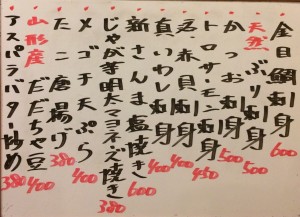 金目鯛刺身 600
天然ぶり刺身 500
かつお刺身 500
トロサーモン刺身 450
赤貝刺身 400
真いわし刺身 400
新さんま塩焼き 600
じゃが芋明太マヨネーズ焼き 380
メゴチ天ぷら 400
たこ唐揚げ 380
山形産だだちゃ豆 400
アスパラバター炒め 380